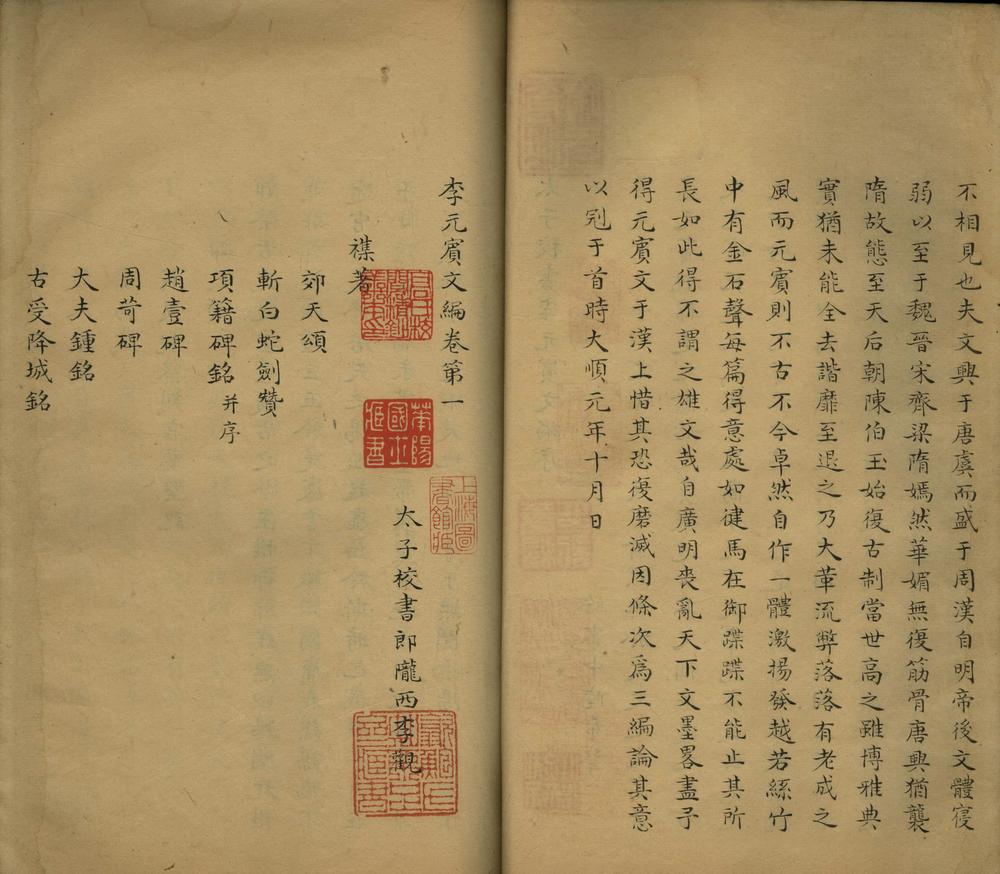 不相見也夫文興于唐虞而盛于周漢自明帝後文體寖
弱以至于魏晉宋齊梁隋嫣然華媚無復筋骨唐興猶襲
隋故態至天后朝陳伯玉始復古制當世高之雖博雅典
實猶未能全去諧靡至退之乃大革流弊落落有老成之
風而元賓則不古不今卓然自作一體激揚發越若絲竹
中有金石聲每篇得意處如健馬在御蹀蹀不能止其所
長如此得不謂之雄文哉自廣明喪亂天下文墨畧盡予
得元賓文于漢上惜其恐復磨滅因條次爲三編論其意
以冠于首時大順元年十月日
李元賓文編卷第一
太子校書郎隴西李觀
襍著
郊天頌
斬白蛇劍贊
項籍碑銘并序
趙壹碑
周苛碑
大夫鍾銘
古受降城銘
上海圖
書館藏